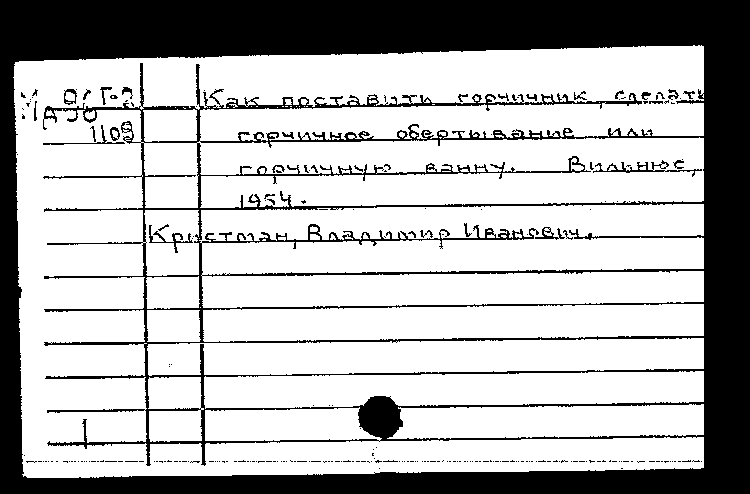 МА
Как поставить горчичник, сделать
1109 горчичное обертывание или
горчичную ванну. Вильнюс,
1954.
Кристман, Владимир Иванович.